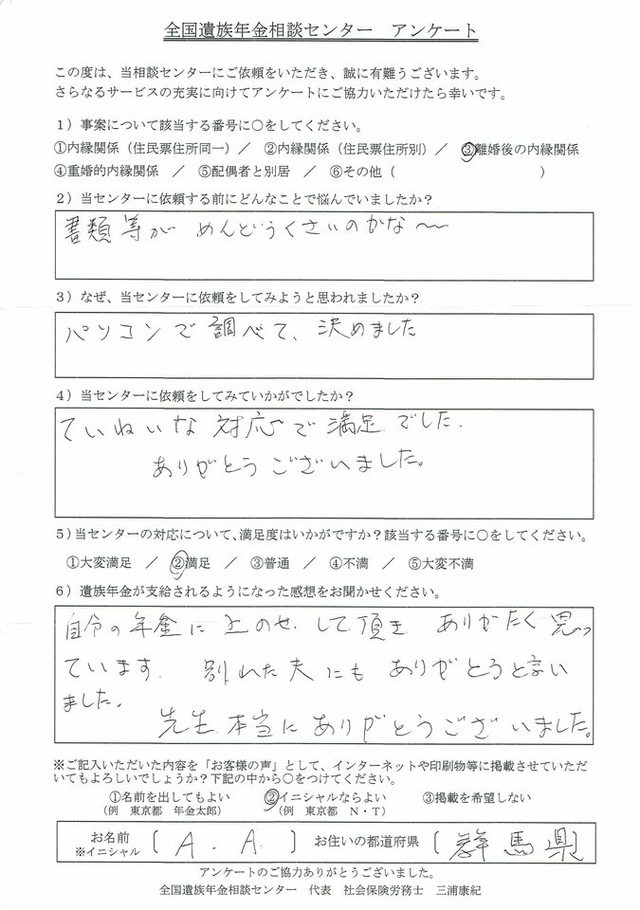 全国遺族年金相談センター　アンケート
この度は、当相談センターにご依頼をいただき、誠に有難うございます。
さらなるサービスの充実に向けてアンケートにご協力いただけたら幸いです。
1）事案について該当する番号に○をしてください。
①内縁関係（住民票住所同一）／　②内縁関係（住民票住所別）／　③離婚後の内縁関係
④重婚的内縁関係　／　⑤配偶者と別居　／　⑥その他（　　　　　　　　）
2）当センターに依頼する前にどんなことで悩んでいましたか？
書類等が　めんどうくさいのかな〜
3）なぜ、当センターに依頼をしてみようと思われましたか？
パソコンで調べて、決めました
4）当センターに依頼をしてみていかがでしたか？
ていねいな対応で満足でした.
ありがとうございました。
5）当センターの対応について、満足度はいかがですか？該当する番号に○をしてください。
①大変満足　／　②満足　／　③普通　／　④不満　／　⑤大変不満
6）遺族年金が支給されるようになった感想をお聞かせください。
自分の年金に上のせして頂き　ありがたく思っ
ています.　別れた夫にもありがとうと言い
ました。
先生本当にありがとうございました。
※ご記入いただいた内容を「お客様の声」として、インターネットや印刷物等に掲載させていただ
いてもよろしいでしょうか？下記の中から○をつけてください。
①名前を出してもよい　　②イニシャルならよい　　③掲載を希望しない
（例　東京都　年金太郎）　　（例　東京都　N・T）
お名前　〔　A . A .　〕　お住いの都道府県　〔　群馬県
※イニシャル
アンケートのご協力ありがとうございました。
全国遺族年金相談センター　代表　社会保険労務士　三浦康紀